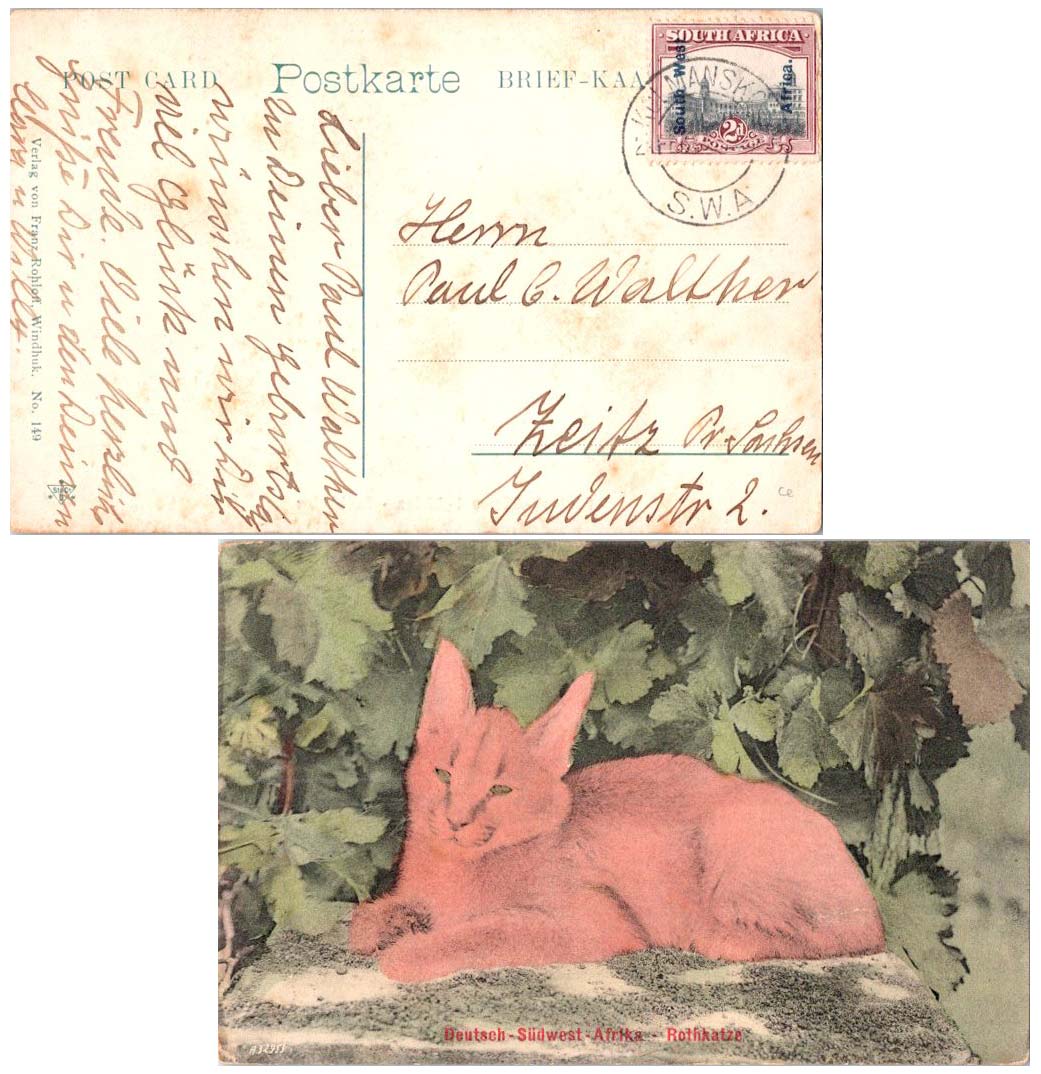 POST CARD Postkarte BRIEF-KAA
SOUTH AFRICA
South West
Africa.
2d
POSTAGE
KOLMANSKOP
S.W.A
Lieber Paul Walther
zu Deinem Geburtstag
wünschen wir Dir
viel Glück und
Freude. Viele herzliche
Grüße Dir u den Deinen
Verlag von Franz Rohloff, Windhuk. No. 149
Herrn
Paul C. Walther
Zeitz Pr. Sachsen
Judenstr 2.
ce
Deutsch-Südwest-Afrika - Rothkatze
A32955